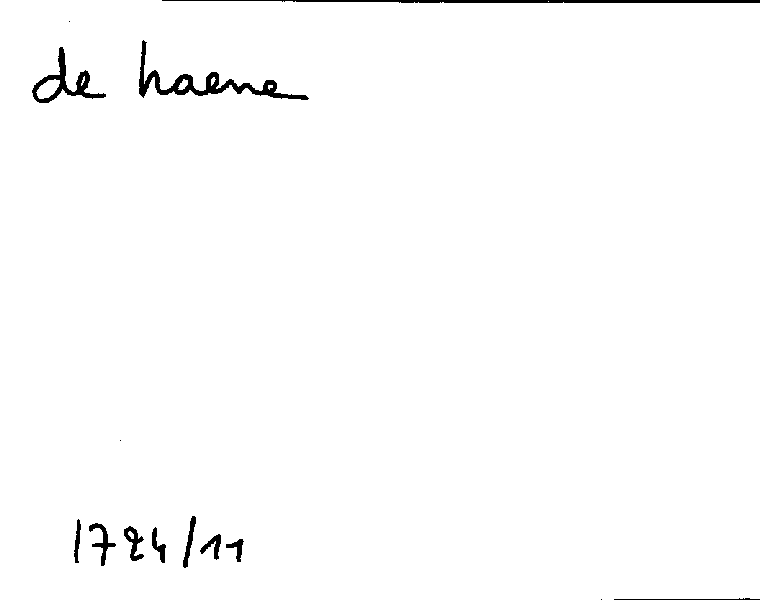 de haene
1724/11